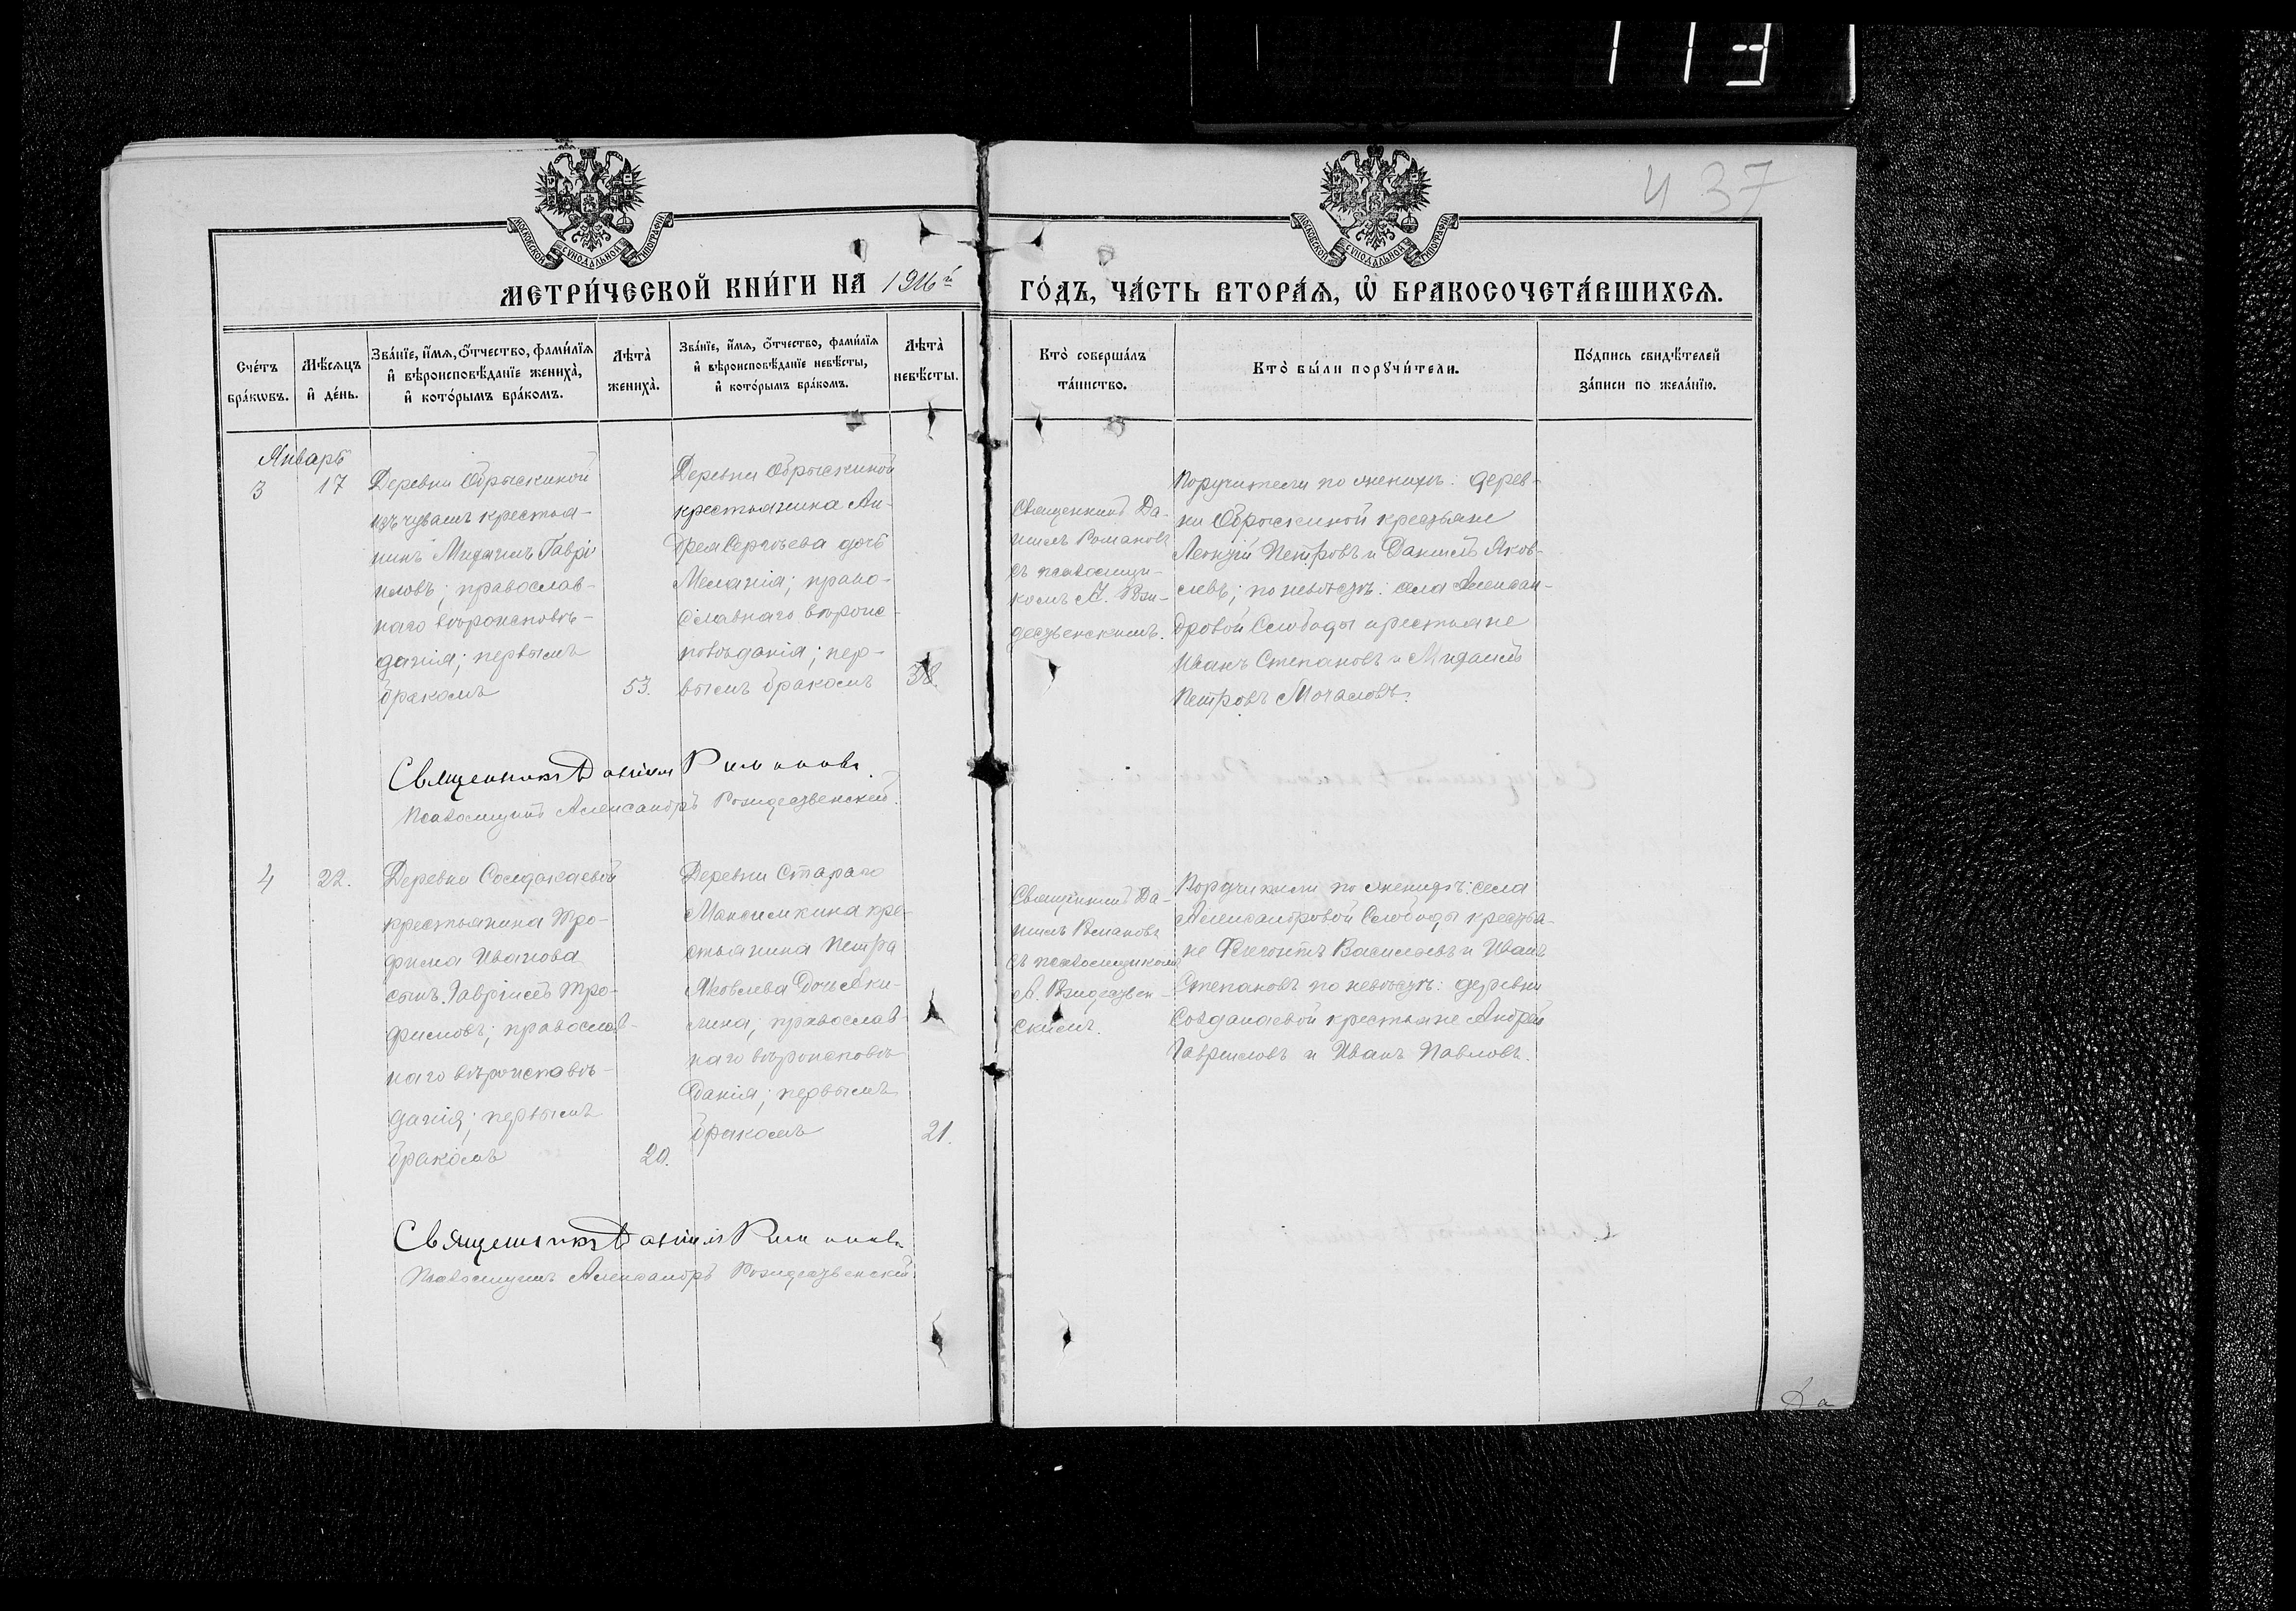 113
437
МОСКОВСКОЙ СУНОДАЛЬНОЙ ТИПОГРАФІИ
МОСКОВСКОЙ СУНОДАЛЬНОЙ ТИПОГРАФІИ
МЕТРИ́ЧЕСКОЙ КНИ́ГИ НА 1916й ГО́ДЪ, ЧА́СТЬ ВТОРА́Ѧ, Ѡ҆ БРАКОСОЧЕТА́ВШИХСѦ.
Сче́тъ
бра́кѡвъ.
Мѣ́сѧцъ
и҆ де́нь.
Зва́нїе, и҆́мѧ, ѻ҆́тчество, фами́лїѧ
и҆ вѣроисповѣ́данїе жениха̀,
и҆ кото́рымъ бра́комъ.
Лѣта̀
жениха̀.
Зва́нїе, и҆́мѧ, ѻ҆́тчество, фами́лїѧ
и҆ вѣроисповѣ́данїе невѣ́сты,
и҆ кото́рымъ бра́комъ.
Лѣта̀
невѣ́сты.
Кто̀ соверша́лъ
та́инство.
Кто̀ бы́ли порꙋчи́тели.
По́дпись свидѣ́телей
за́писи по жела́нїю.
Январь
3
17
Деревни Обрыскиной
изъ чувашъ крестья-
нинъ Михаилъ Гаврі
иловъ; православ-
наго вѣроисповѣ-
данія; первымъ
бракомъ
53.
Деревни Обрыскиной
крестьянина Ан-
дрея Сергѣева дочь
Меланія; право-
славнаго вѣроис-
повѣданія; пер-
вымъ бракомъ
38.
Священникъ Да-
ніилъ Романовъ
съ псаломщи-
комъ А. Рож-
дественскимъ.
Поручители по женихѣ: дерев-
ни Обрыскиной крестьяне
Леонтій Петровъ и Даніилъ Яков-
левъ; по невѣстѣ: села Алексан-
дровой Слободы крестьяне
Иванъ Степановъ и Михаилъ
Петровъ Мочаловъ.
Священникъ Даніилъ Романовъ.
Псаломщикъ Александръ Рождественскій.
4
22.
Деревни Солдакаевой
крестьянина Тро-
фима Иванова
сынъ Гавріилъ Тро-
фимовъ; православ-
наго вѣроисповѣ-
данія; первымъ
бракомъ
20.
Деревни Стараго
Максимкина кре-
стьянина Петра
Яковлева дочь Аки-
лина; православ-
наго вѣроисповѣ
данія; первымъ
бракомъ
21.
Священникъ Да-
ніилъ Романовъ
съ псаломщикомъ
А. Рождествен-
скимъ.
Поручители по женихѣ: села
Александровой Слободы крестья-
не Филиппъ Васильевъ и Иванъ
Степановъ по невѣстѣ: деревни
Солдакаевой крестьяне Андрей
Гавриловъ и Иванъ Павловъ.
Священникъ Даніилъ Романовъ
Псаломщикъ Александръ Рождественскій.